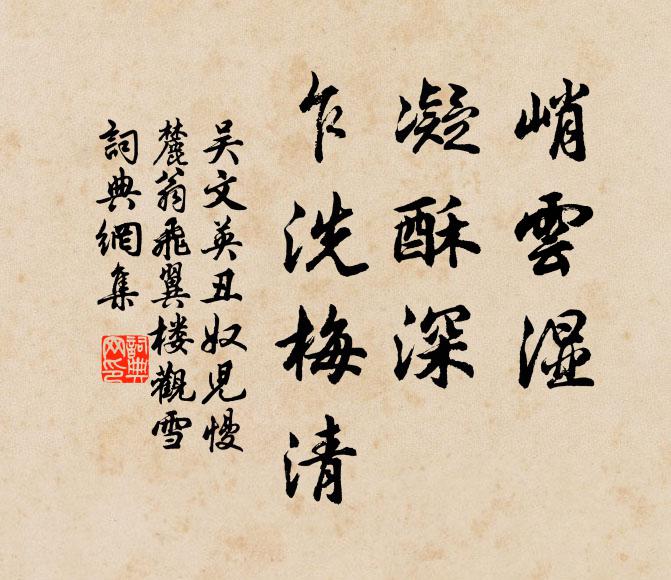 峭雲湿
凝酥深
乍洗梅清
吴文英丑奴児慢
麓翁飛翼楼觀雪
詞典網集
詞典网印